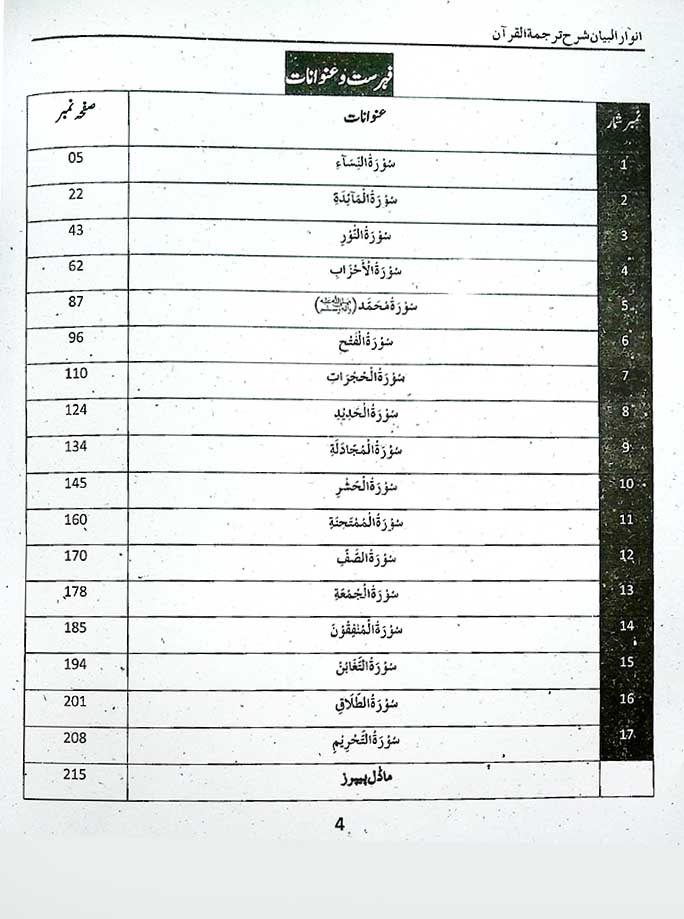 انوار البیان شرح ترجمۃ القرآن
فہرست و عنوانات
نمبر شمار عنوانات صفحہ نمبر
1 سُوْرَۃُ النِّسَآءِ 05
2 سُوْرَۃُ الْمَآئِدَۃِ 22
3 سُوْرَۃُ النُّوْرِ 43
4 سُوْرَۃُ الْأَحْزَابِ 62
5 سُوْرَۃُ مُحَمَّد (ﷺ) 87
6 سُوْرَۃُ الْفَتْحِ 96
7 سُوْرَۃُ الْحُجُرَاتِ 110
8 سُوْرَۃُ الْحَدِیْدِ 124
9 سُوْرَۃُ الْمُجَادَلَۃِ 134
10 سُوْرَۃُ الْحَشْرِ 145
11 سُوْرَۃُ الْمُمْتَحِنَۃِ 160
12 سُوْرَۃُ الصَّفِّ 170
13 سُوْرَۃُ الْجُمُعَۃِ 178
14 سُوْرَۃُ الْمُنٰفِقُوْنَ 185
15 سُوْرَۃُ التَّغَابُنْ 194
16 سُوْرَۃُ الطَّلَاقِ 201
17 سُوْرَۃُ التَّحْرِیْمِ 208
ماڈل پیپرز 215
4